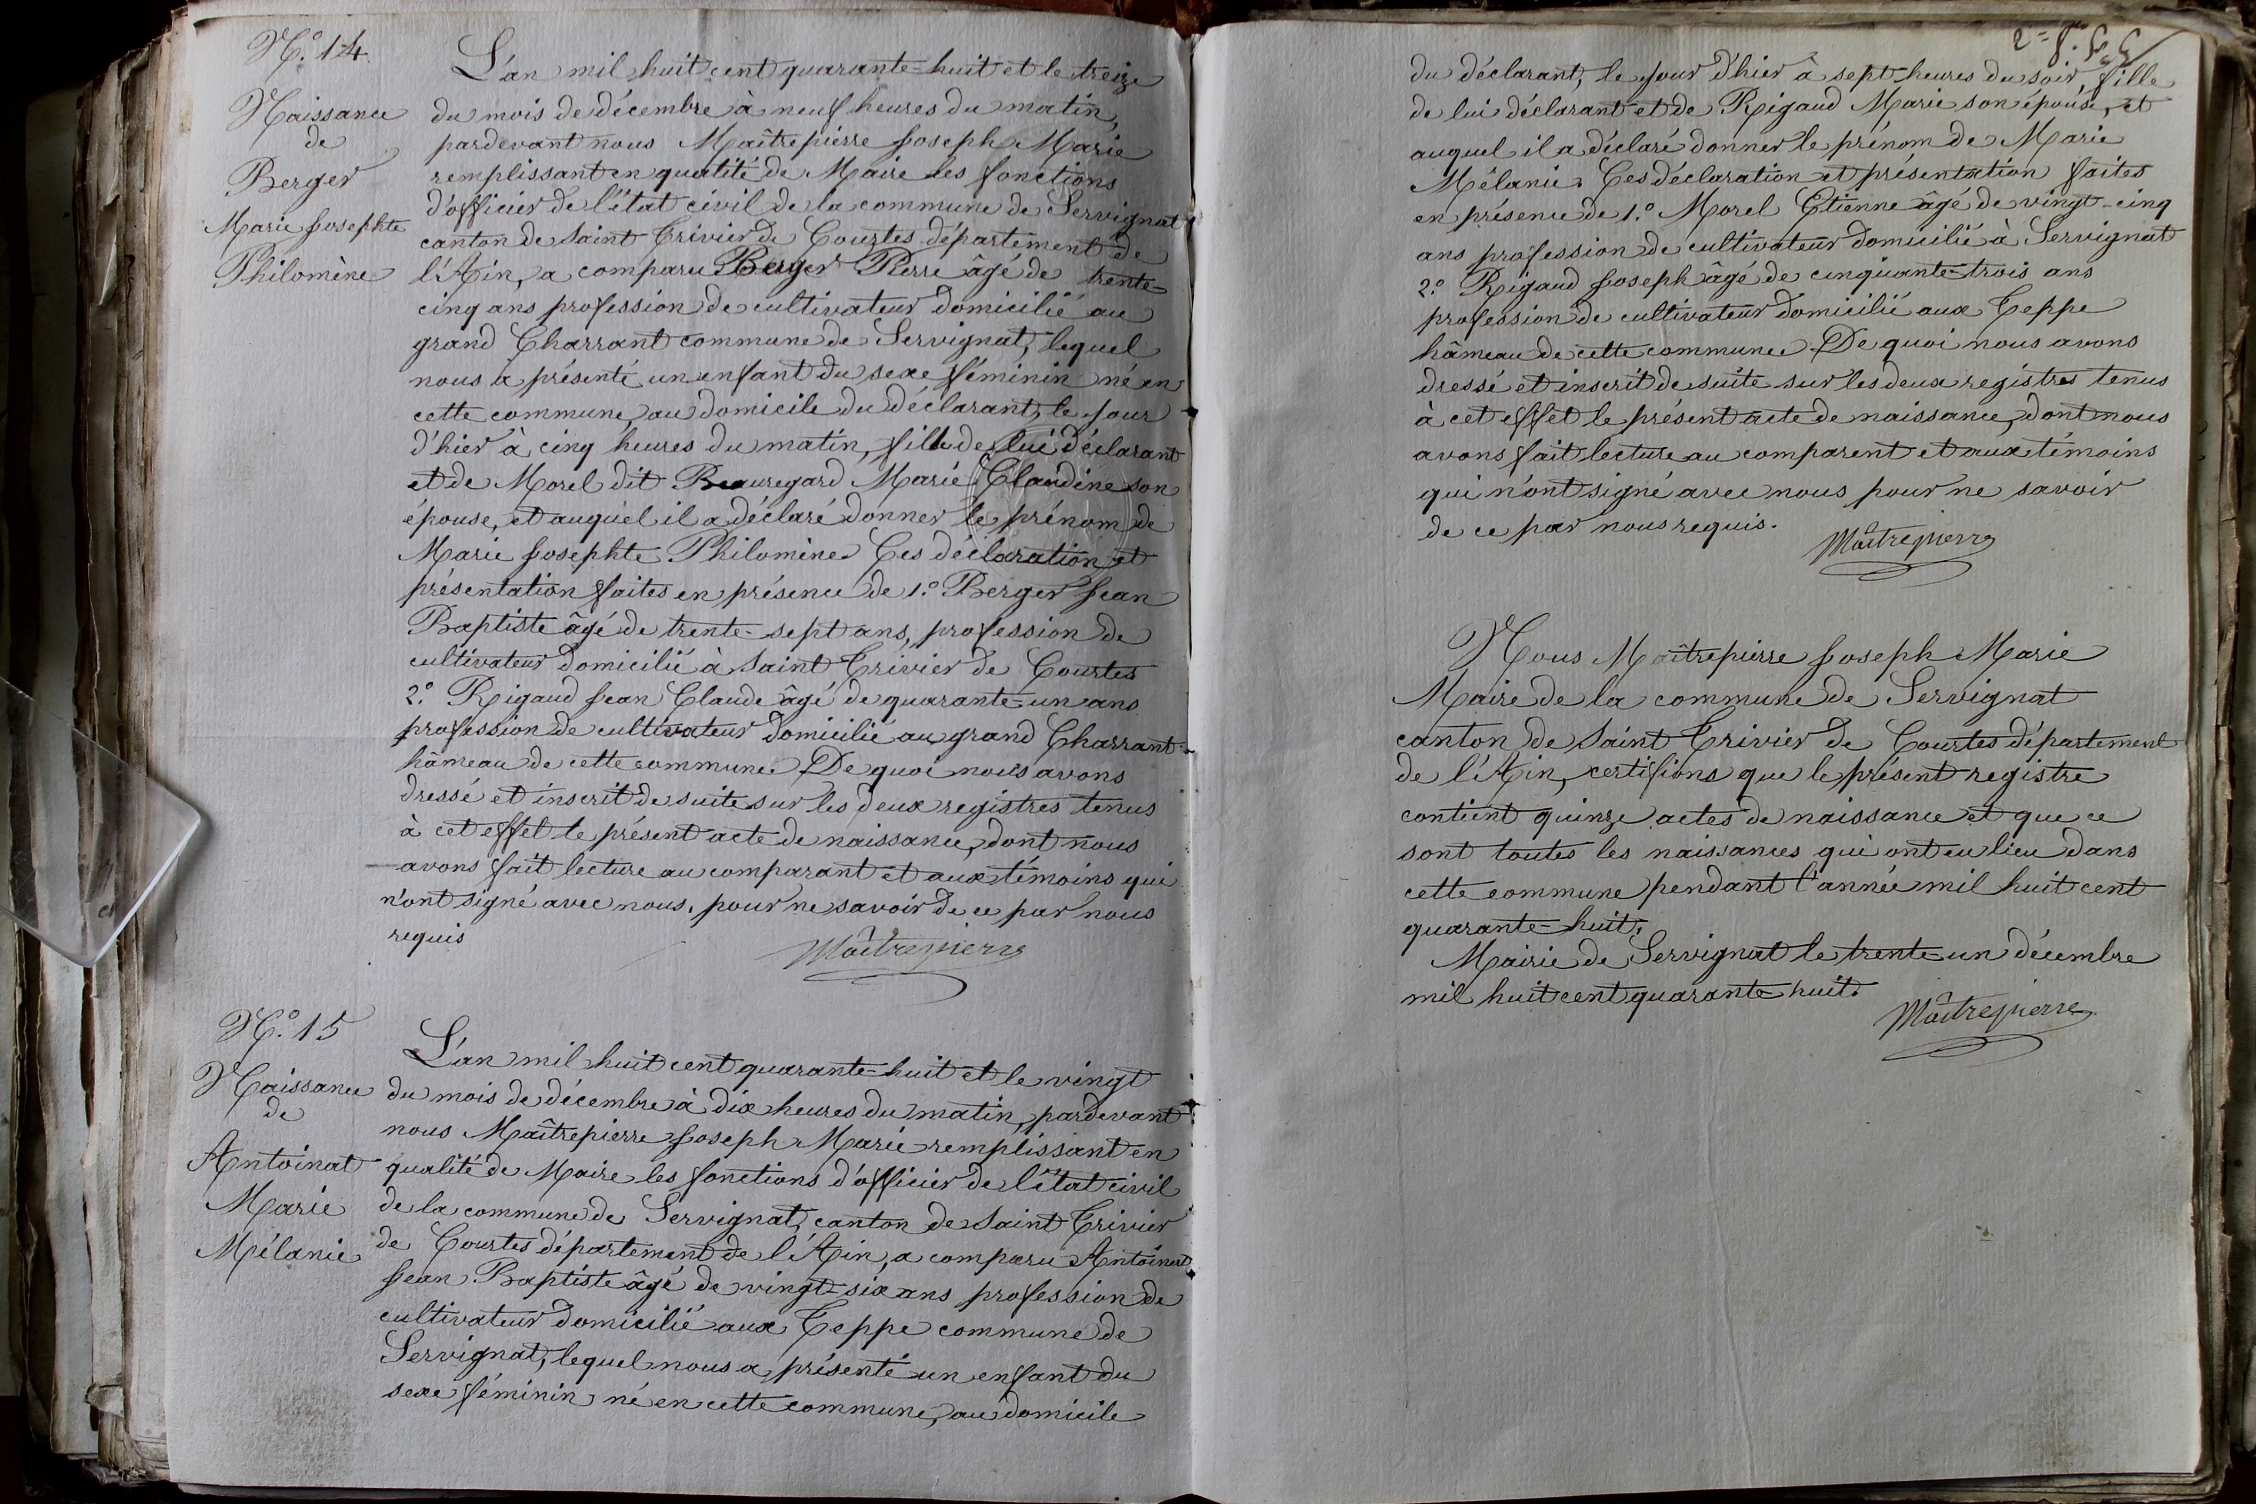 N.° 14
Naissance
de
Berger
Marie Josephte
Philomène
L'an mil huit cent quarante-huit et le treize
du mois de décembre à neuf heures du matin,
pardevant nous Maîtrepierre Joseph Marie
remplissant en qualité de Maire les fonctions
d'officier de l'état civil de la commune de Servignat
canton de Saint Trivier de Courtes département de
l'Ain, a comparu Berger Pierre âgé de trente-
cinq ans profession de cultivateur domicilié au
grand Charrant commune de Servignat, lequel
nous a présenté un enfant du sexe féminin né en
cette commune, au domicile du déclarant, le jour
d'hier à cinq heures du matin, fille de lui déclarant
et de Morel dit Beauregard Marie Claudine son
épouse, et auquel il a déclaré donner le prénom de
Marie Josephte Philomène. Ces déclaration et
présentation faites en présence de 1.° Berger Jean
Baptiste âgé de trente-sept ans, profession de
cultivateur domicilié à Saint Trivier de Courtes
2.° Rigaud Jean Claude âgé de quarante-un ans
profession de cultivateur domicilié au grand Charrant
hâmeau de cette commune. De quoi nous avons
dressé et inscrit de suite sur les deux registres tenus
à cet effet le présent acte de naissance, dont nous
avons fait lecture au comparant et aux témoins qui
n'ont signé avec nous, pour ne savoir de ce par nous
requis
Maîtrepierre
N.° 15
Naissance
de
Antoinat
Marie
Mélanie
L'an mil huit cent quarante-huit et le vingt
du mois de décembre à dix heures du matin, pardevant
nous Maîtrepierre Joseph Marie remplissant en
qualité de Maire les fonctions d'officier de l'état civil
de la commune de Servignat, canton de Saint Trivier
de Courtes département de l'Ain, a comparu Antoinat
Jean Baptiste âgé de vingt-six ans profession de
cultivateur domicilié aux Teppe commune de
Servignat, lequel nous a présenté un enfant du
sexe féminin né en cette commune, au domicile
du déclarant, le jour d'hier à sept heures du soir fille
de lui déclarant et de Rigaud Marie son épouse, et
auquel il a déclaré donner le prénom de Marie
Mélanie. Ces déclaration et présentation faites
en présence de 1.° Morel Etienne âgé de vingt-cinq
ans profession de cultivateur domicilié à Servignat
2.° Rigaud Joseph âgé de cinquante-trois ans
profession de cultivateur domicilié aux Teppe
hâmeau de cette commune. De quoi nous avons
dressé et inscrit de suite sur les deux registres tenus
à cet effet le présent acte de naissance, dont nous
avons fait lecture au comparent et aux témoins
qui n'ont signé avec nous pour ne savoir
de ce par nous requis.
Maîtrepierre
Nous Maîtrepierre Joseph Marie
Maire de la commune de Servignat
canton de Saint Trivier de Courtes département
de l'Ain, certifions que le présent registre
contient quinze actes de naissance et que ce
sont toutes les naissances qui ont eu lieu dans
cette commune pendant l'année mil huit cent
quarante-huit.
Mairie de Servignat le trente-un décembre
mil huit cent quarante-huit.
Maîtrepierre